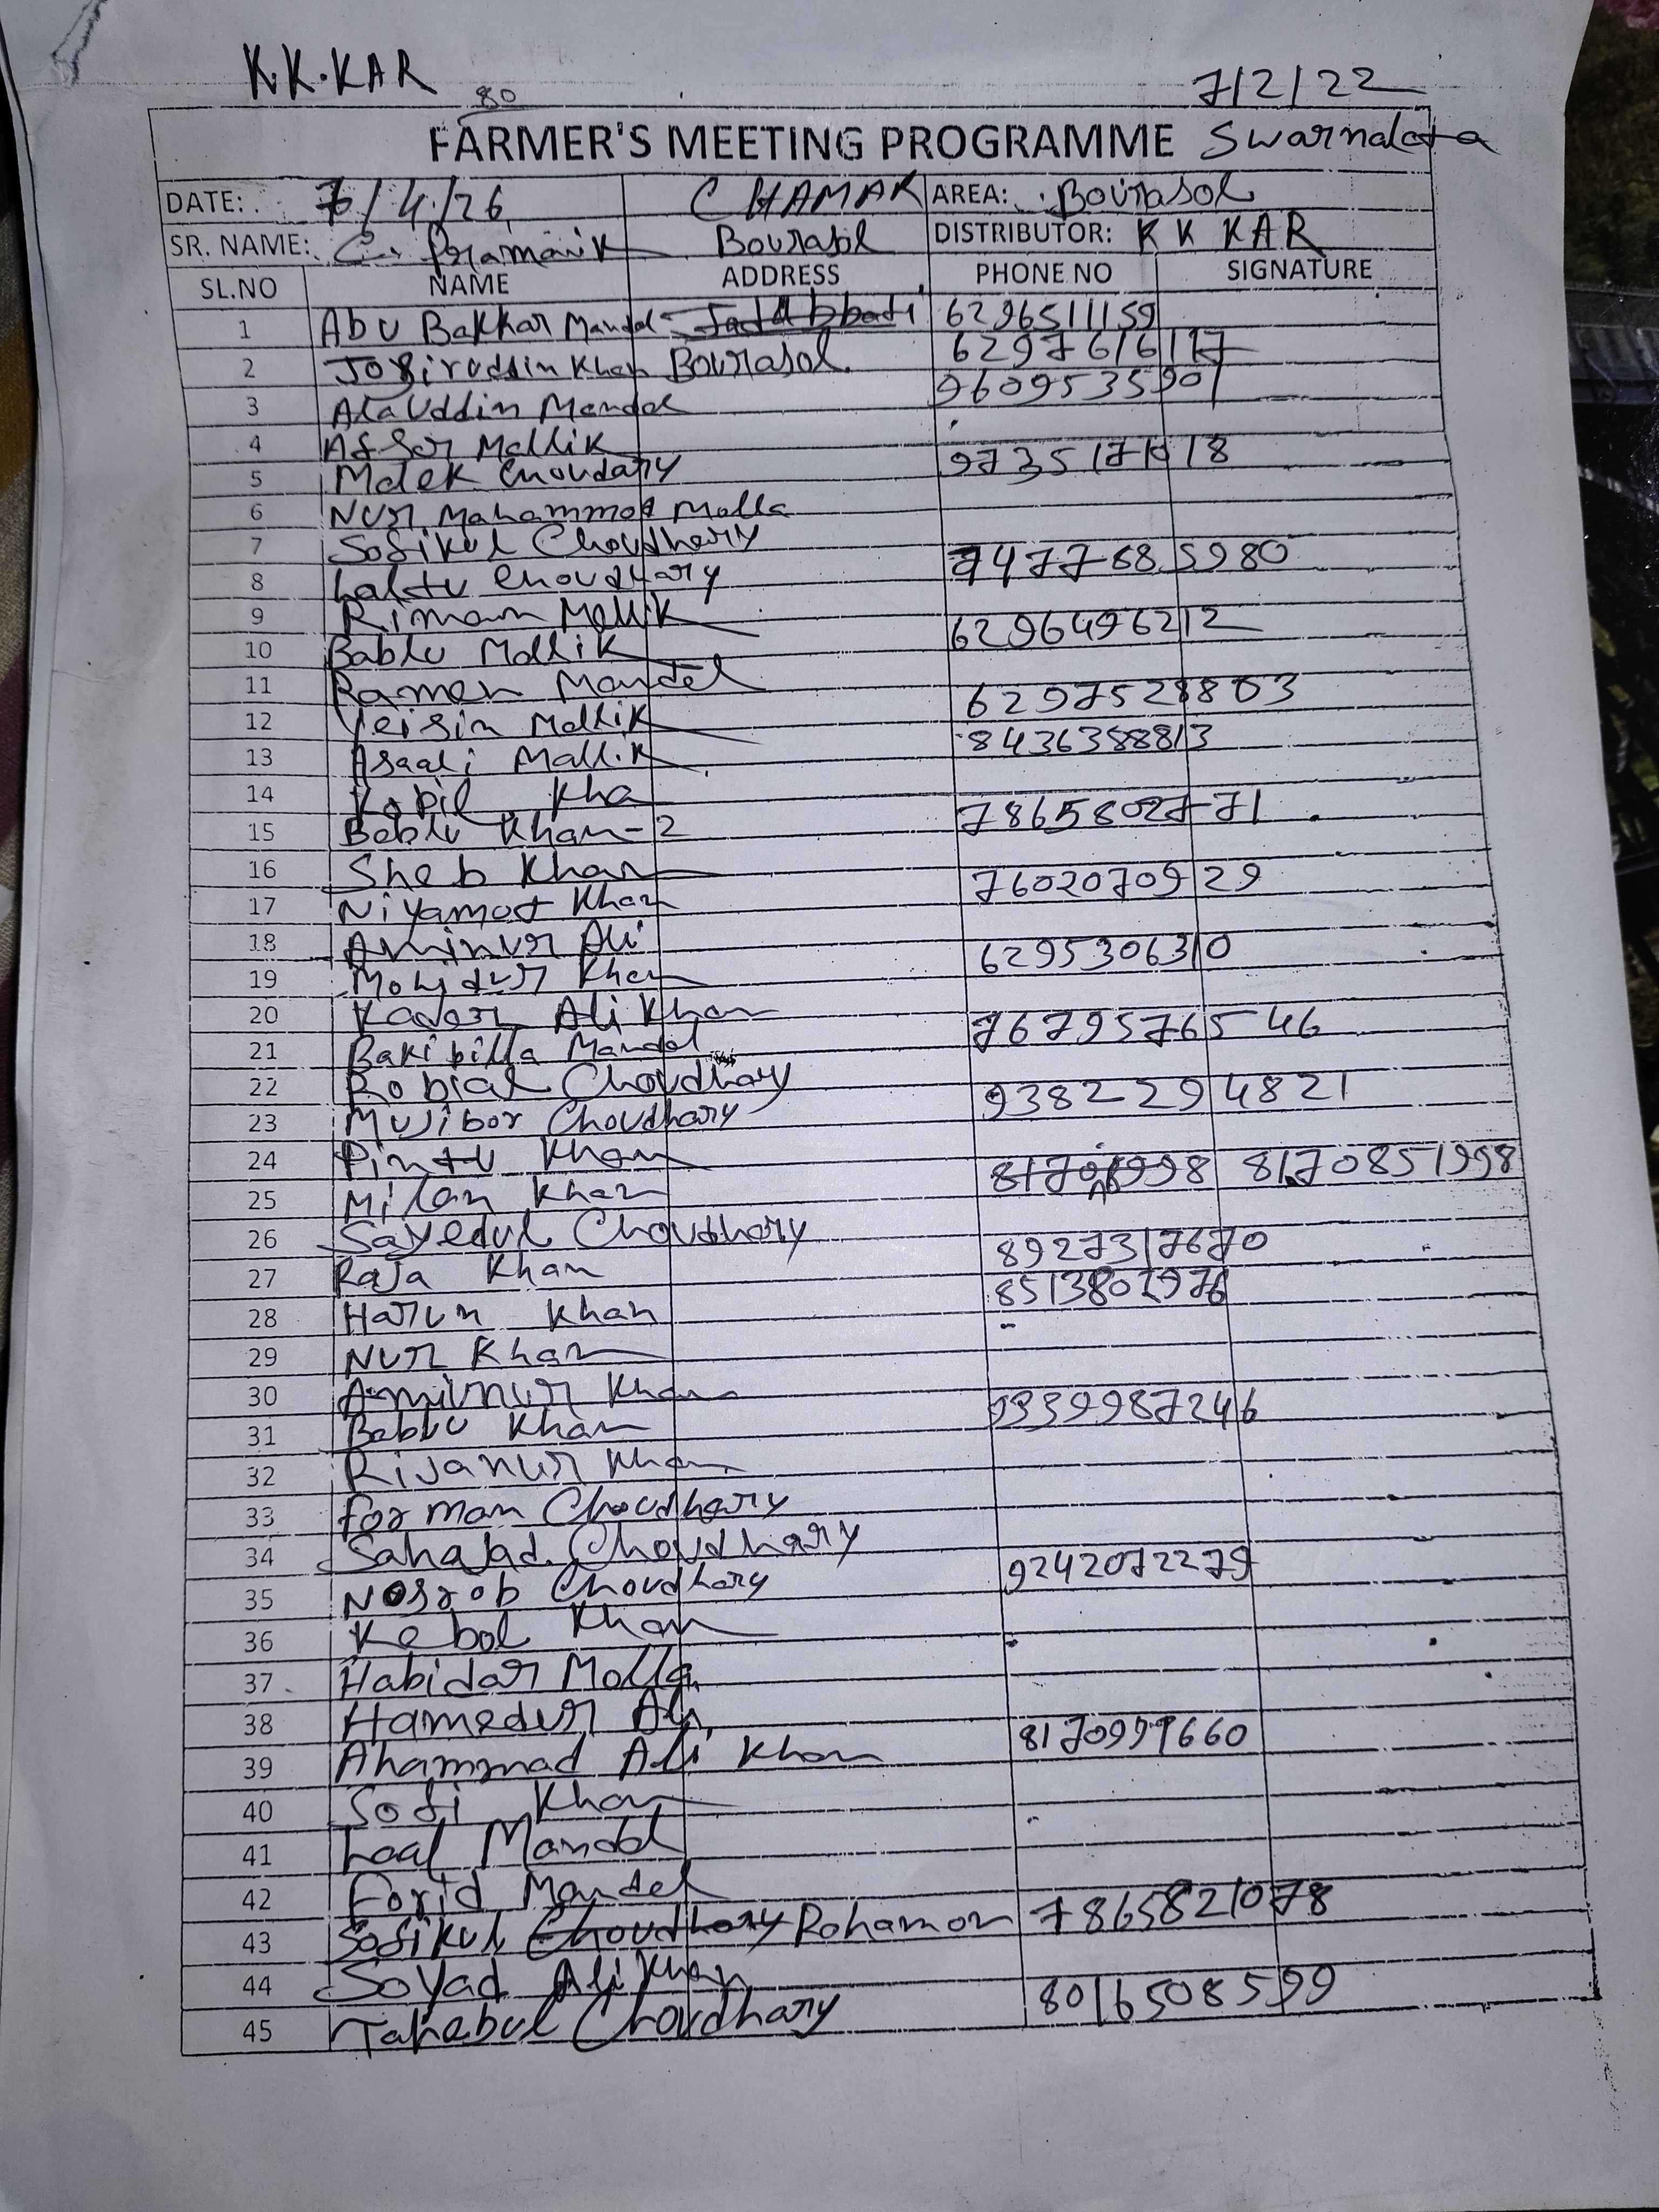 K.K.KAR 7/2/22
80
FARMER'S MEETING PROGRAMME Swarnalata
DATE: 7/4/26 CHAMAK AREA: Bourasol
SR. NAME: C. Pramanik Bourasol DISTRIBUTOR: K K KAR
SL.NO NAME ADDRESS PHONE NO SIGNATURE
1 Abu Bakkar Mandal 6296511159
2 Jobiruddin Khan Bourasol 6297616117
3 Alauddin Mandal 9609535901
4 Afsar Mallik
5 Malek Choudary 9735171418
6 Nur Mahammad Malla
7 Sofikul Choudhary
8 Laltu Choudhary 7477685980
9 Riman Mallik
10 Bablu Mallik 6296496212
11 Ramen Mandal
12 Yeisin Mallik 6297528803
13 Asaali Mallik 8436388813
14 Kopil Kha
15 Bablu Khan-2 7865802771
16 Sheb Khan
17 Niyamot Khan 7602070929
18 Aminur Ali
19 Mohidur Khan 6295306310
20 Kader Ali Khan
21 Bakibilla Mandal 7679576546
22 Robial Choudhary
23 Mujibor Choudhary 9382294821
24 Pintu Khan
25 Milan Khan 8170851998
26 Sayedul Choudhary
27 Raja Khan 8927317670
28 Harun Khan
29 Nur Khan
30 Aminur Khan
31 Bablu Khan 9339987246
32 Rijanur Khan
33 Forman Choudhary
34 Sahajad Choudhary
35 Nosrob Choudhary 9242072279
36 Kebol Khan
37 Habidar Molla
38 Hamedur Ali
39 Ahammad Ali Khan 8170997660
40 Sofi Khan
41 Laal Mandal
42 Forid Mandal
43 Sofikul Choudhary Rohamon 7865821078
44 Soyad Ali Khan
45 Tahabul Choudhary 8016508599